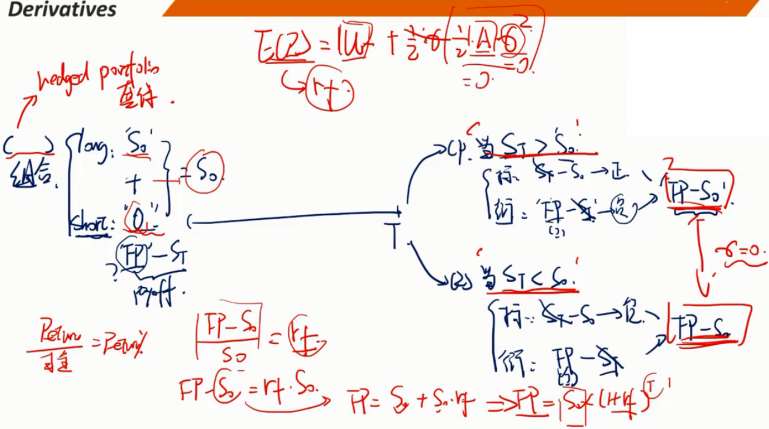 Derivatives
hedged portfolio
组合
long: S₀
+
= S₀
short: "0"
FP - S_T
payoff
T
(1) 当 S_T > S₀
标: S_T - S₀ → 正
衍: FP - S_T → 负
FP - S₀
(2) 当 S_T < S₀
标: S_T - S₀ → 负
衍: FP - S_T
FP - S₀
σ = 0.
= Return%
(FP - S₀) / S₀ = rf
FP - S₀ = rf · S₀
FP = S₀ + S₀·rf ⇒ FP = S₀ × (1+rf)^T